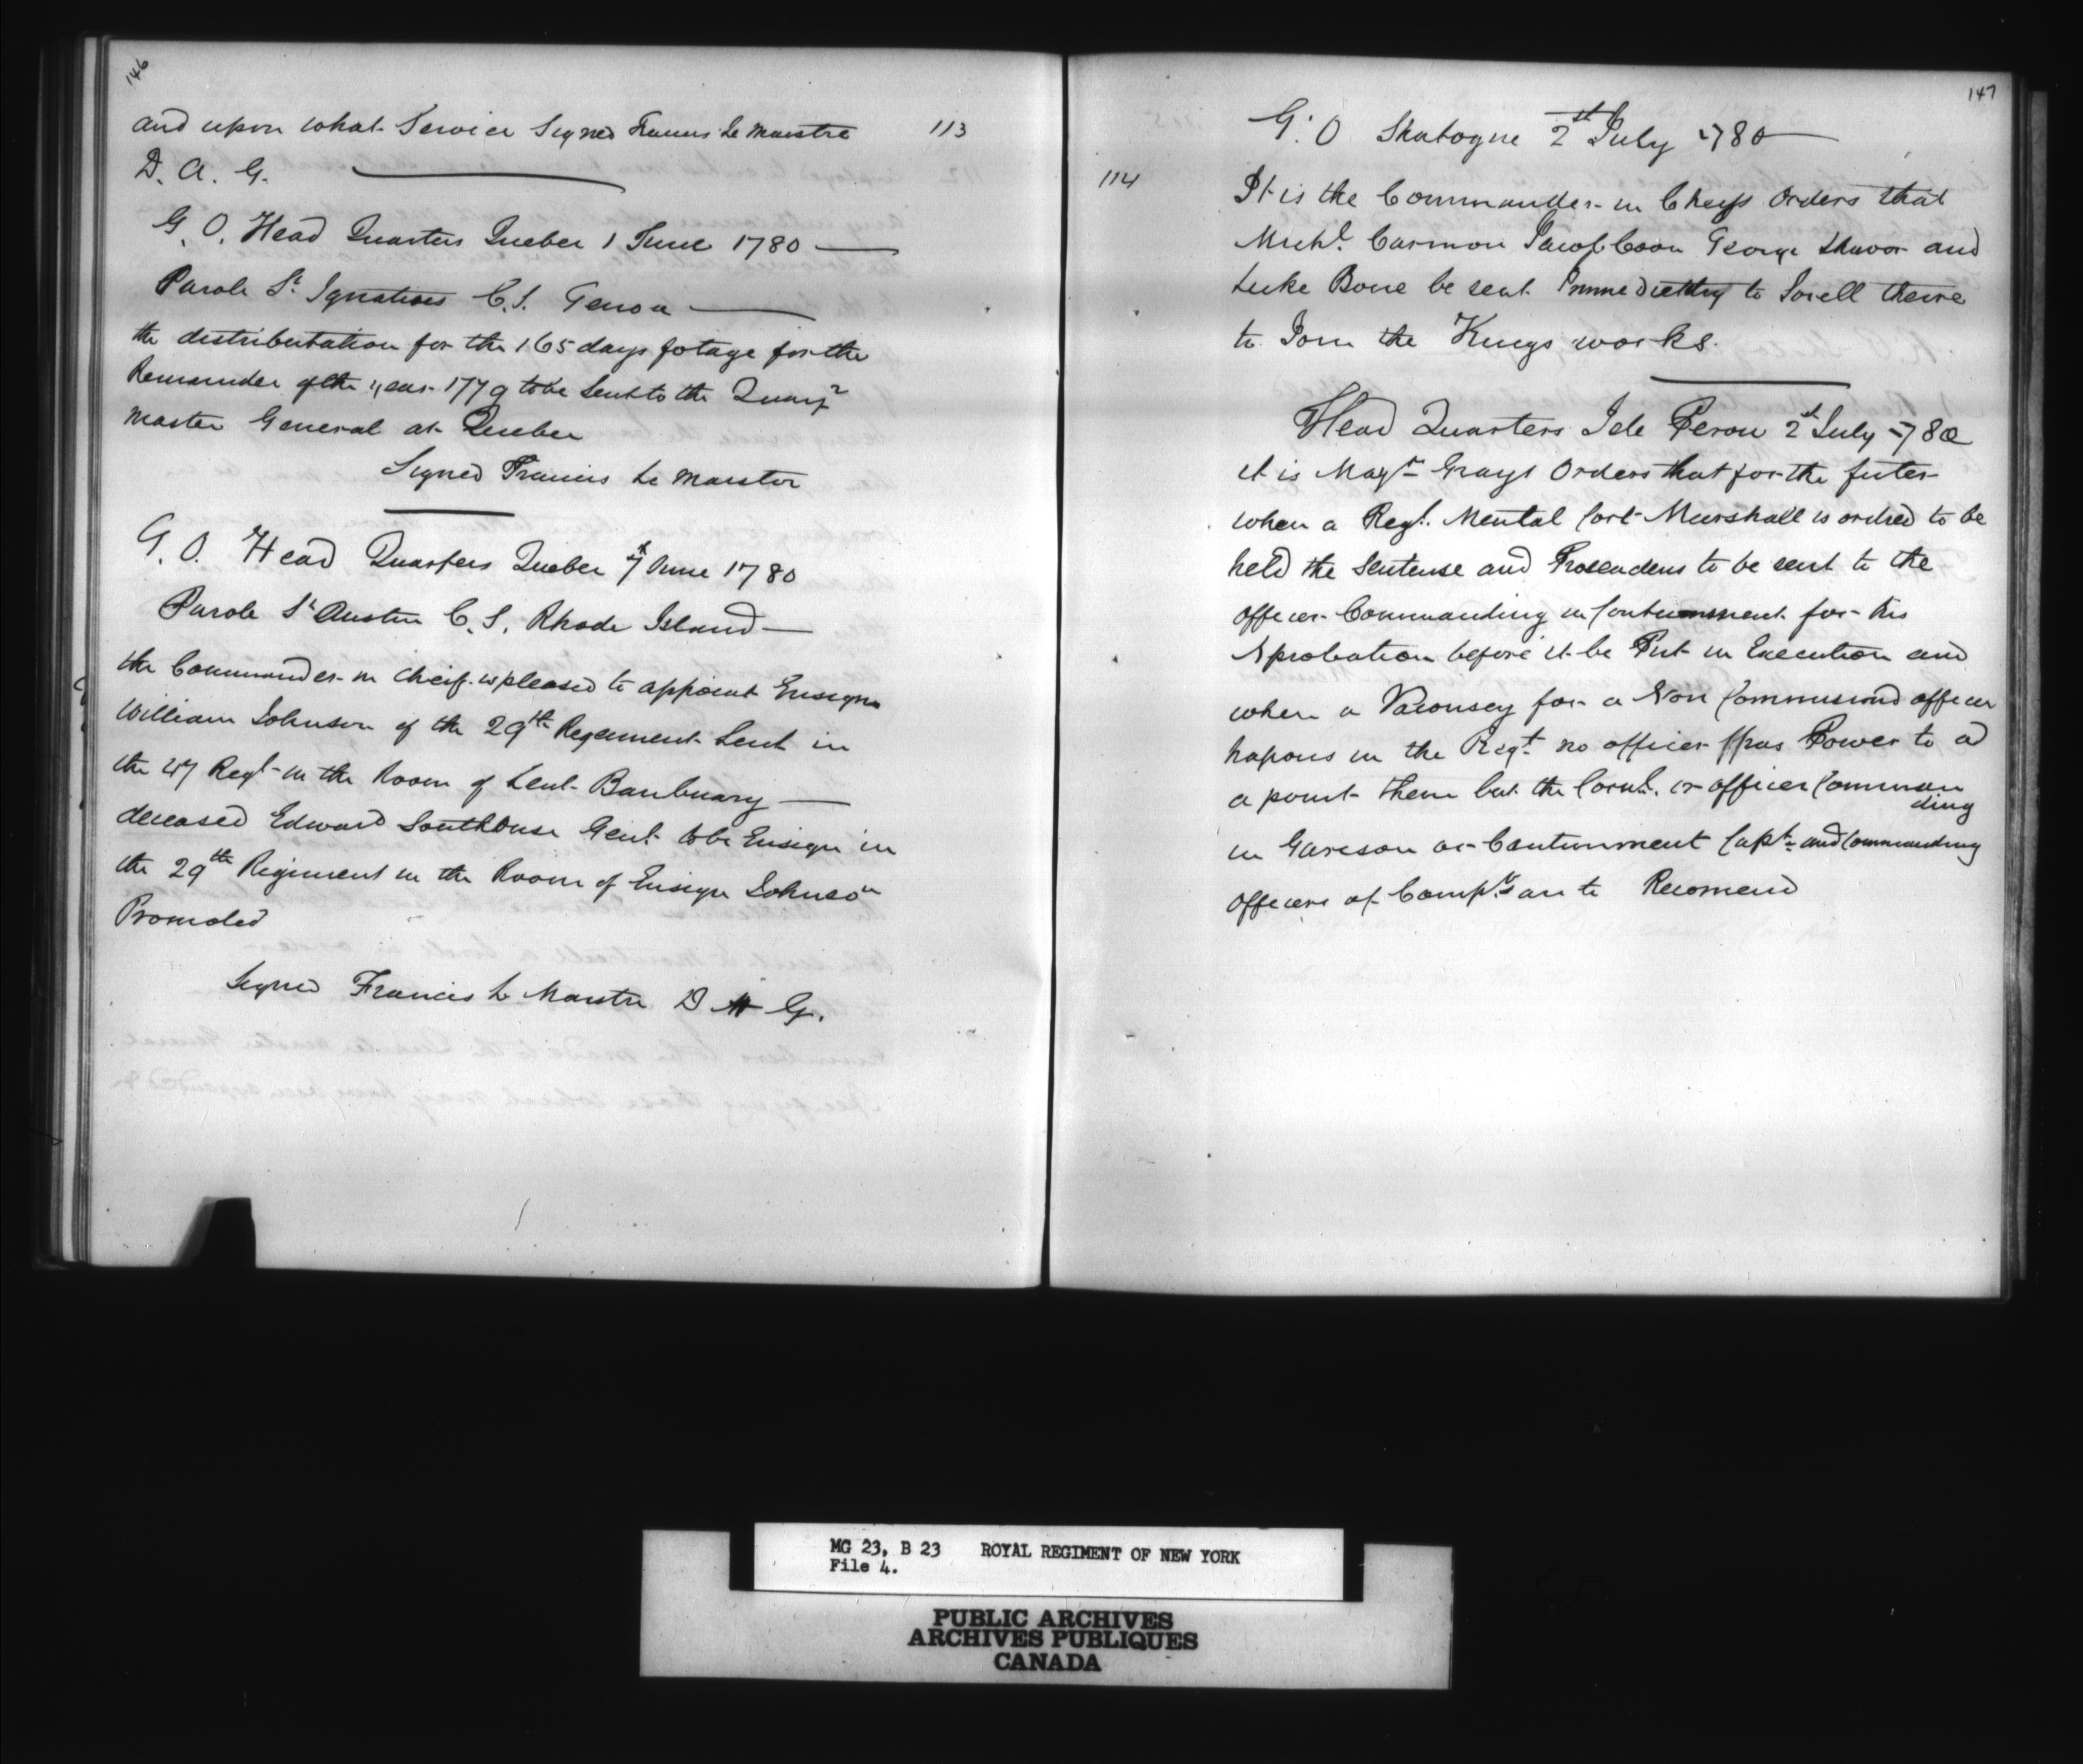 146
and upon what Service Signed Francis Le Maistre 113
D. A. G.
G. O. Head Quarters Quebec 1 June 1780
Parole St Ignatious C. S. Genoa
the distributation for the 165 days fotage for the
Remainder of the year 1779 to be Sent to the Quarr
Master General at Quebec
Signed Francis Le Maister
G. O. Head Quarters Quebec 7th June 1780
Parole St Austin C. S. Rhode Island
the Commander in Cheif is pleased to appoint Ensign
William Johnson of the 29th Regement Leut in
the 47 Regt in the Room of Leut Banbuary
deceased Edward Southouse Gent to be Ensign in
the 29th Regiment in the Room of Ensign Johnson
Promoted
Signed Francis Le Maistre D A G.
147
G. O Shatogne 2st July 1780
114
It is the Commander in Cheifs Orders that
Michl. Carmon Jacob Coon George Shavor and
Luke Bone be sent Immedietley to Sorell theire
to Join the Kings works.
Head Quarters Isle Peron 2st July 1780
it is Magr Grays Orders that for the futer
when a Regt. Mental Cort Murshall is ordred to be
held the Sentense and Proseadens to be sent to the
officer Commanding in Contunment for his
Aprobation before it be Put in Execution and
when a Vaconsey for a Non Commisiond officer
hapons in the Regt no officer has Power to ad
a point them but the Cornl. or officer Comman
ding
in Gareson or Contunment Capts and Commanding
officers of Compys are to Recomend
MG 23, B 23 ROYAL REGIMENT OF NEW YORK
File 4.
PUBLIC ARCHIVES
ARCHIVES PUBLIQUES
CANADA